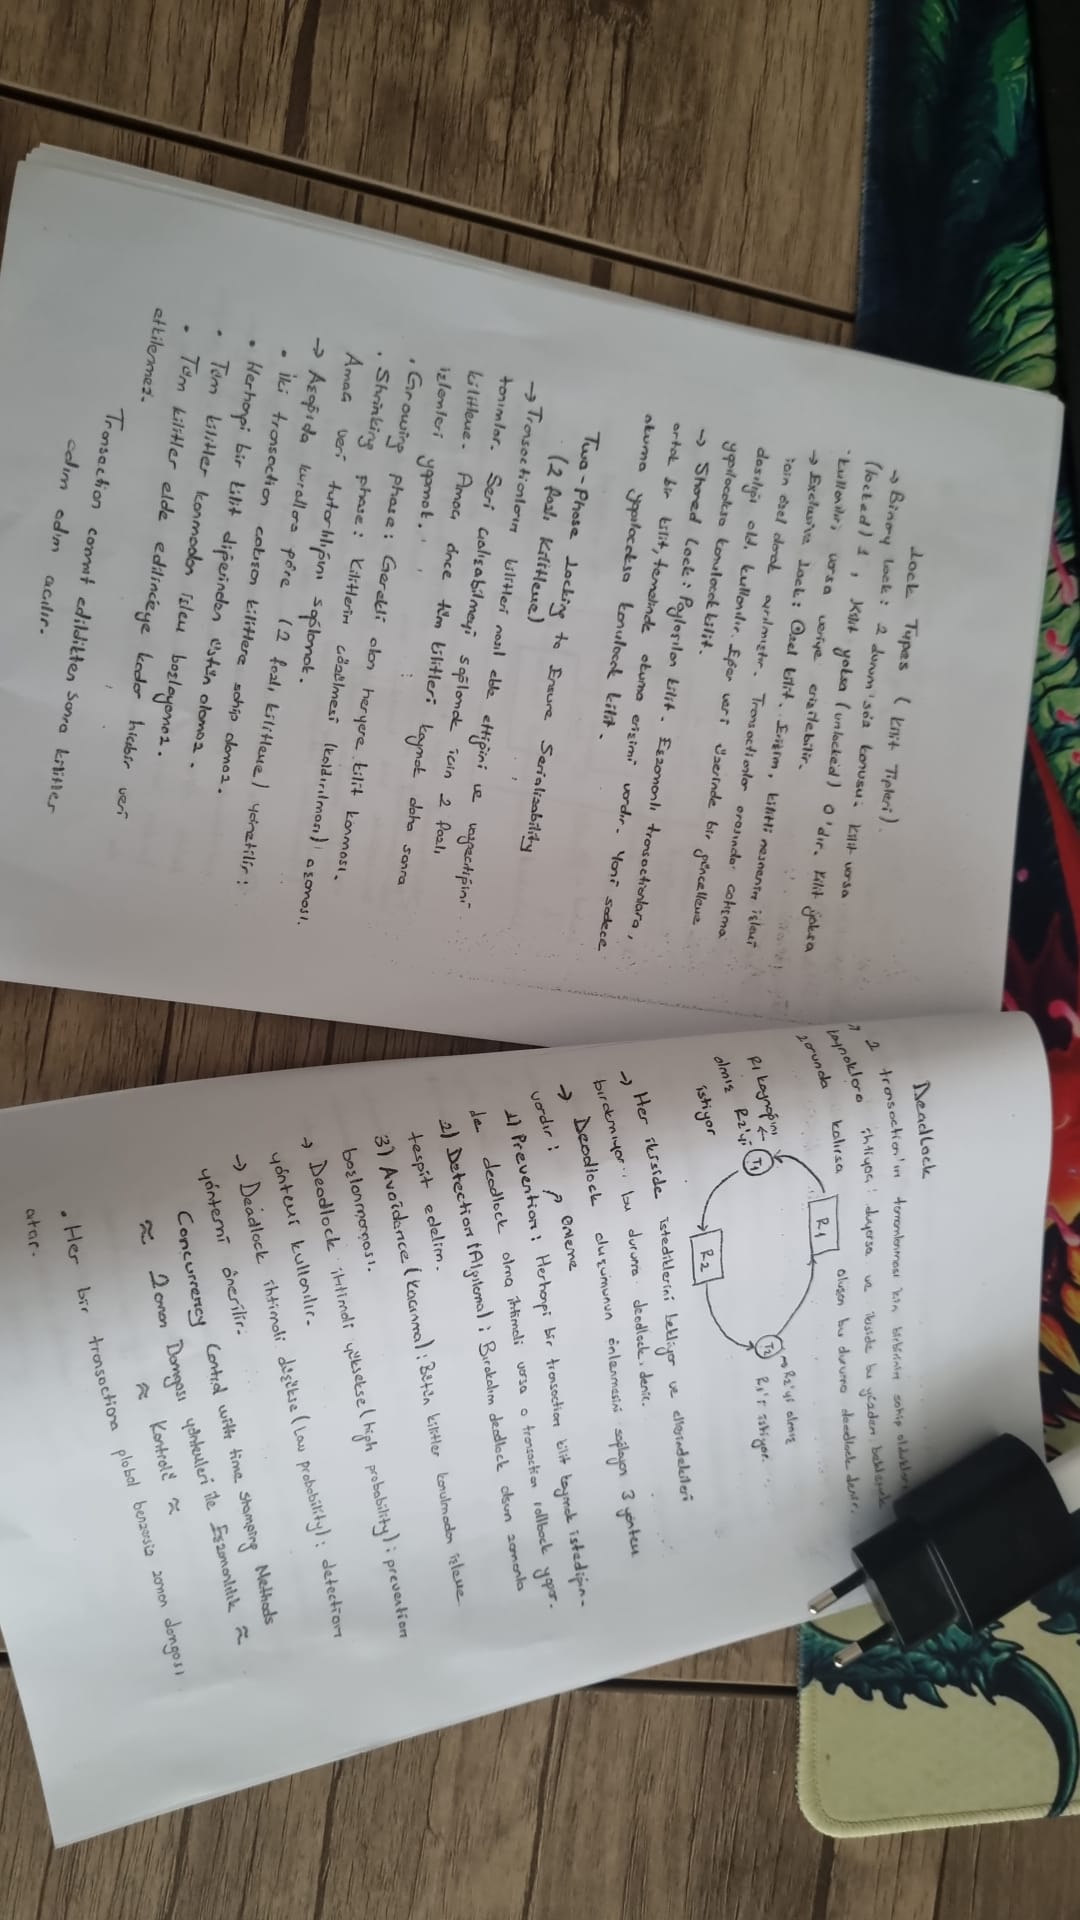 Lock Types (Kilit Tipleri).
→ Binary Lock: 2 durum söz konusu. Kilit varsa
(locked) 1, Kilit yoksa (unlocked) 0'dır. Kilit yoksa
kullanılır, varsa veriye erişilebilir.
→ Exclusive Lock: Özel kilit. Erişim, kilitli nesnenin işlemi
için özel olarak ayrılmıştır. Transactionlar arasında çatışma
olasılığı old. kullanılır. Eğer veri üzerinde bir güncelleme
yapılacaksa konulacak kilit.
→ Shared Lock: Paylaşılan kilit. Eşzamanlı transactionlara,
ortak bir kilit, temelinde okuma erişimi vardır. Yani sadece
okuma yapılacaksa konulacak kilit.
Two-Phase Locking to Ensure Serializability
(2 fazlı Kilitleme)
→ Transactionların kilitleri nasıl elde ettiğini ve vazgeçtiğini
tanımlar. Seri çalışabilmeyi sağlamak için 2 fazlı
kilitleme. Amaç önce tüm kilitleri koymak daha sonra
işlemleri yapmak.
• Growing phase: Gerekli olan heryere kilit konması.
• Shrinking phase: Kilitlerin çözülmesi (kaldırılması) aşaması.
Amaç veri tutarlılığını sağlamak.
→ Aşağıda kurallara göre (2 fazlı kilitleme) yönetilir:
• İki transaction çatışan kilitlere sahip olamaz.
• Herhangi bir kilit diğerinden üstün olamaz.
• Tüm kilitler konmadan işlem başlayamaz.
• Tüm kilitler elde edilinceye kadar hiçbir veri
etkilenmez.
Transaction commit edildikten sonra kilitler
adım adım açılır.
Deadlock
→ 2 transaction'ın tamamlanması için birbirinin sahip oldukları
kaynaklara ihtiyacı duyarsa ve ikiside bu yüzden beklemek
zorunda kalırsa oluşan bu duruma deadlock denir.
R1
T1
R1 kaynağını ←
almış R2'yi
istiyor
R2
T2
→ R2'yi almış
R1'i istiyor.
→ Her ikiside istediklerini bekliyor ve ellerindekileri
bırakmıyor. bu duruma deadlock denir.
→ Deadlock oluşumunun önlenmesini sağlayan 3 yöntem
vardır: → önleme
1) Prevention: Herhangi bir transaction kilit koymak istediğin-
de deadlock olma ihtimali varsa o transaction rollback yapar.
2) Detection (Algılama): Bırakalım deadlock olsun zamanla
tespit edelim.
3) Avoidance (kaçınma): Bütün kilitler konulmadan işleme
başlanmaması.
→ Deadlock ihtimali yüksekse (high probability): prevention
yöntemi kullanılır.
→ Deadlock ihtimali düşükse (low probability): detection
yöntemi önerilir.
Concurrency Control with time stamping Methods
≈ Zaman Damgası yöntemleri ile Eşzamanlılık ≈
≈ Kontrolü ≈
• Her bir transactiona global benzersiz zaman damgası
atar.